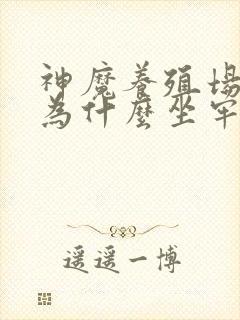 神魔養殖場
為什麼坐牢
遥遥一博